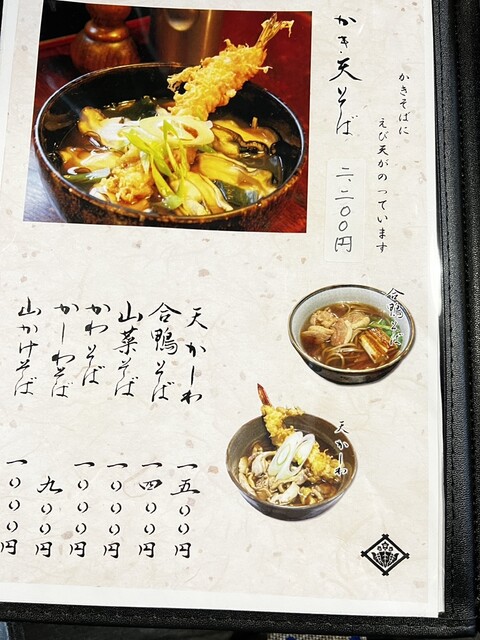 かきそばに
えび天がのっています
かき・天そば 二、二〇〇円
合鴨そば
天かしわ
天かしわ 一五〇〇円
合鴨そば 一四〇〇円
山菜そば 一〇〇〇円
かわそば 一〇〇〇円
かしわそば 九〇〇円
山かけそば 一〇〇〇円